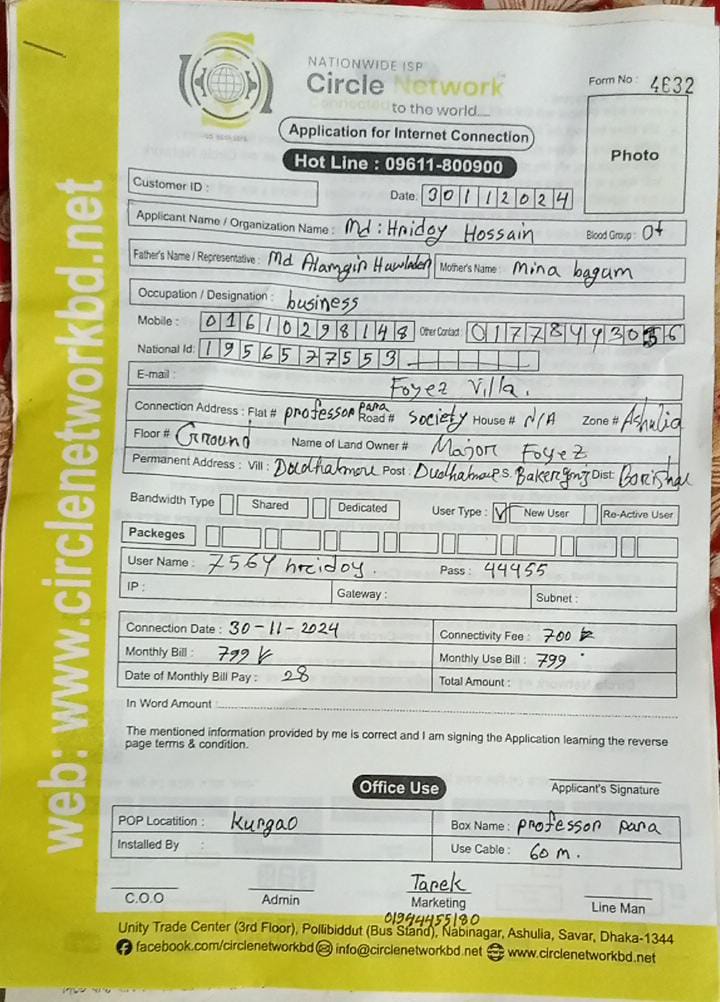 NATIONWIDE ISP
Circle Network
Connected
to the world....
Form No : 4632
Application for Internet Connection
Hot Line : 09611-800900
Photo
Customer ID :
Date: 30112024
Applicant Name / Organization Name : Md : Hridoy Hossain
Blood Group : O+
Father's Name / Representative : Md Alamgir Hawlader Mother's Name : Mina bagum
Occupation / Designation : business
Mobile : 01610298148 Other Contact : 01778443056
National Id: 1956577553
E-mail :
Foyez Villa.
Connection Address : Flat # professor para Road # Society House # N/A Zone # Ashulia
Floor # Ground Name of Land Owner # Major Foyez
Permanent Address : Vill : Dudhalmou Post : Dudhalmou P.S. Bakergonj Dist: Borishal
Bandwidth Type Shared Dedicated User Type : ✓ New User Re-Active User
Packeges
User Name : 7564hreidoy. Pass : 44455
IP : Gateway : Subnet :
Connection Date : 30-11-2024 Connectivity Fee : 700
Monthly Bill : 799 Monthly Use Bill : 799
Date of Monthly Bill Pay : 28 Total Amount :
In Word Amount :
The mentioned information provided by me is correct and I am signing the Application learning the reverse
page terms & condition.
Office Use
Applicant's Signature
POP Locatition : Kurgao Box Name : professor para
Installed By : Use Cable : 60 m.
Tarek
C.O.O Admin Marketing Line Man
01944455180
Unity Trade Center (3rd Floor), Pollibiddut (Bus Stand), Nabinagar, Ashulia, Savar, Dhaka-1344
facebook.com/circlenetworkbd info@circlenetworkbd.net www.circlenetworkbd.net
web: www.circlenetworkbd.net